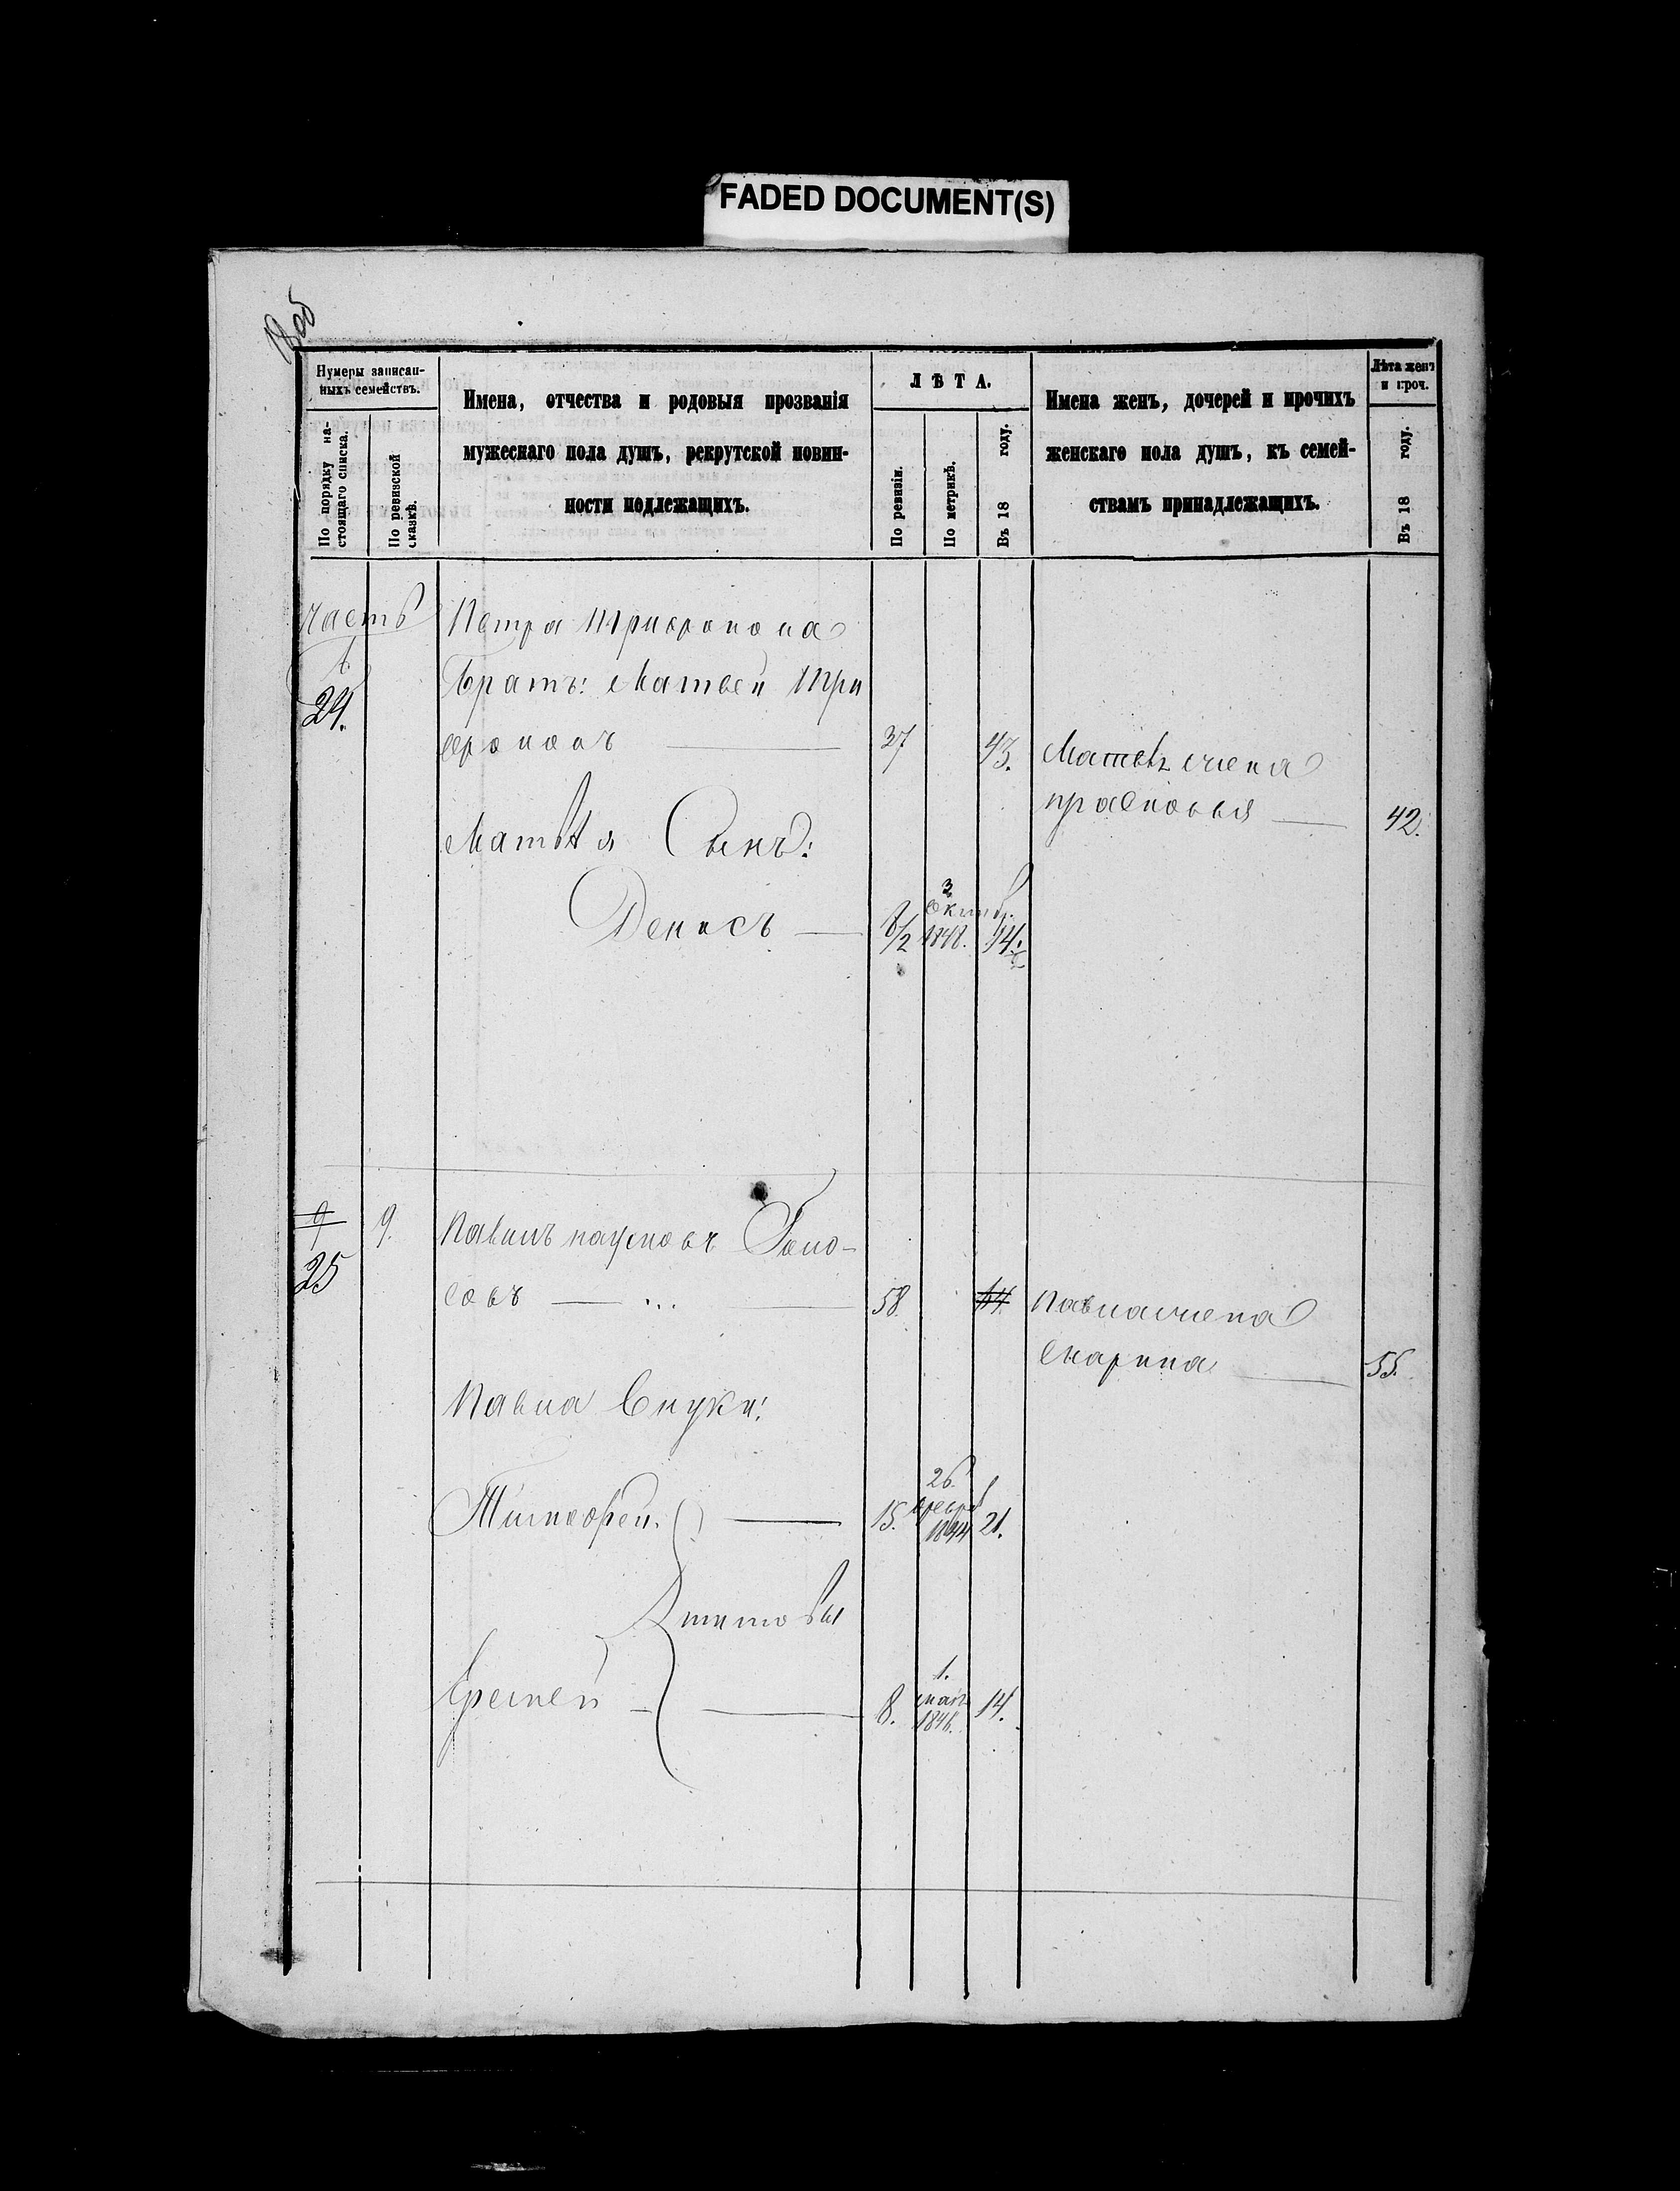 FADED DOCUMENT(S)
Нумеры записан-
ныхъ семействъ.
По порядку на-
стоящаго списка.
По ревизской
сказкѣ.
Имена, отчества и родовыя прозванія
мужескаго пола душъ, рекрутской повин-
ности подлежащихъ.
ЛѢТА.
По ревизіи.
По метрикѣ.
Въ 18 году.
Имена женъ, дочерей и прочихъ
женскаго пола душъ, къ семей-
ствамъ принадлежащихъ.
Лѣта женъ
и проч.
Въ 18 году.
часть Петра Трифонова
Братъ: Матвей Три
24.
фоновъ 37 43. Матвѣя жена
Прасковья 42.
Матвѣя Сынъ:
3
Октяб.
Денисъ 8/2 1848. 14.
9 9. Павелъ Наумовъ
25
совъ 58. 64. Павла жена
55.
Павла Внуки:
26
Тимофей 15. 1844 21.
Титовы
1.
Еремей 8. мая 14.
1846.